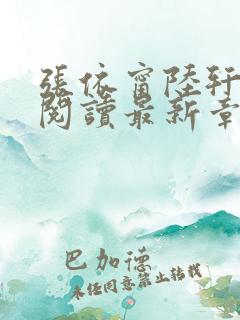 張依甯陸軒
閱讀最新章
巴加德
未經同意禁止轉載